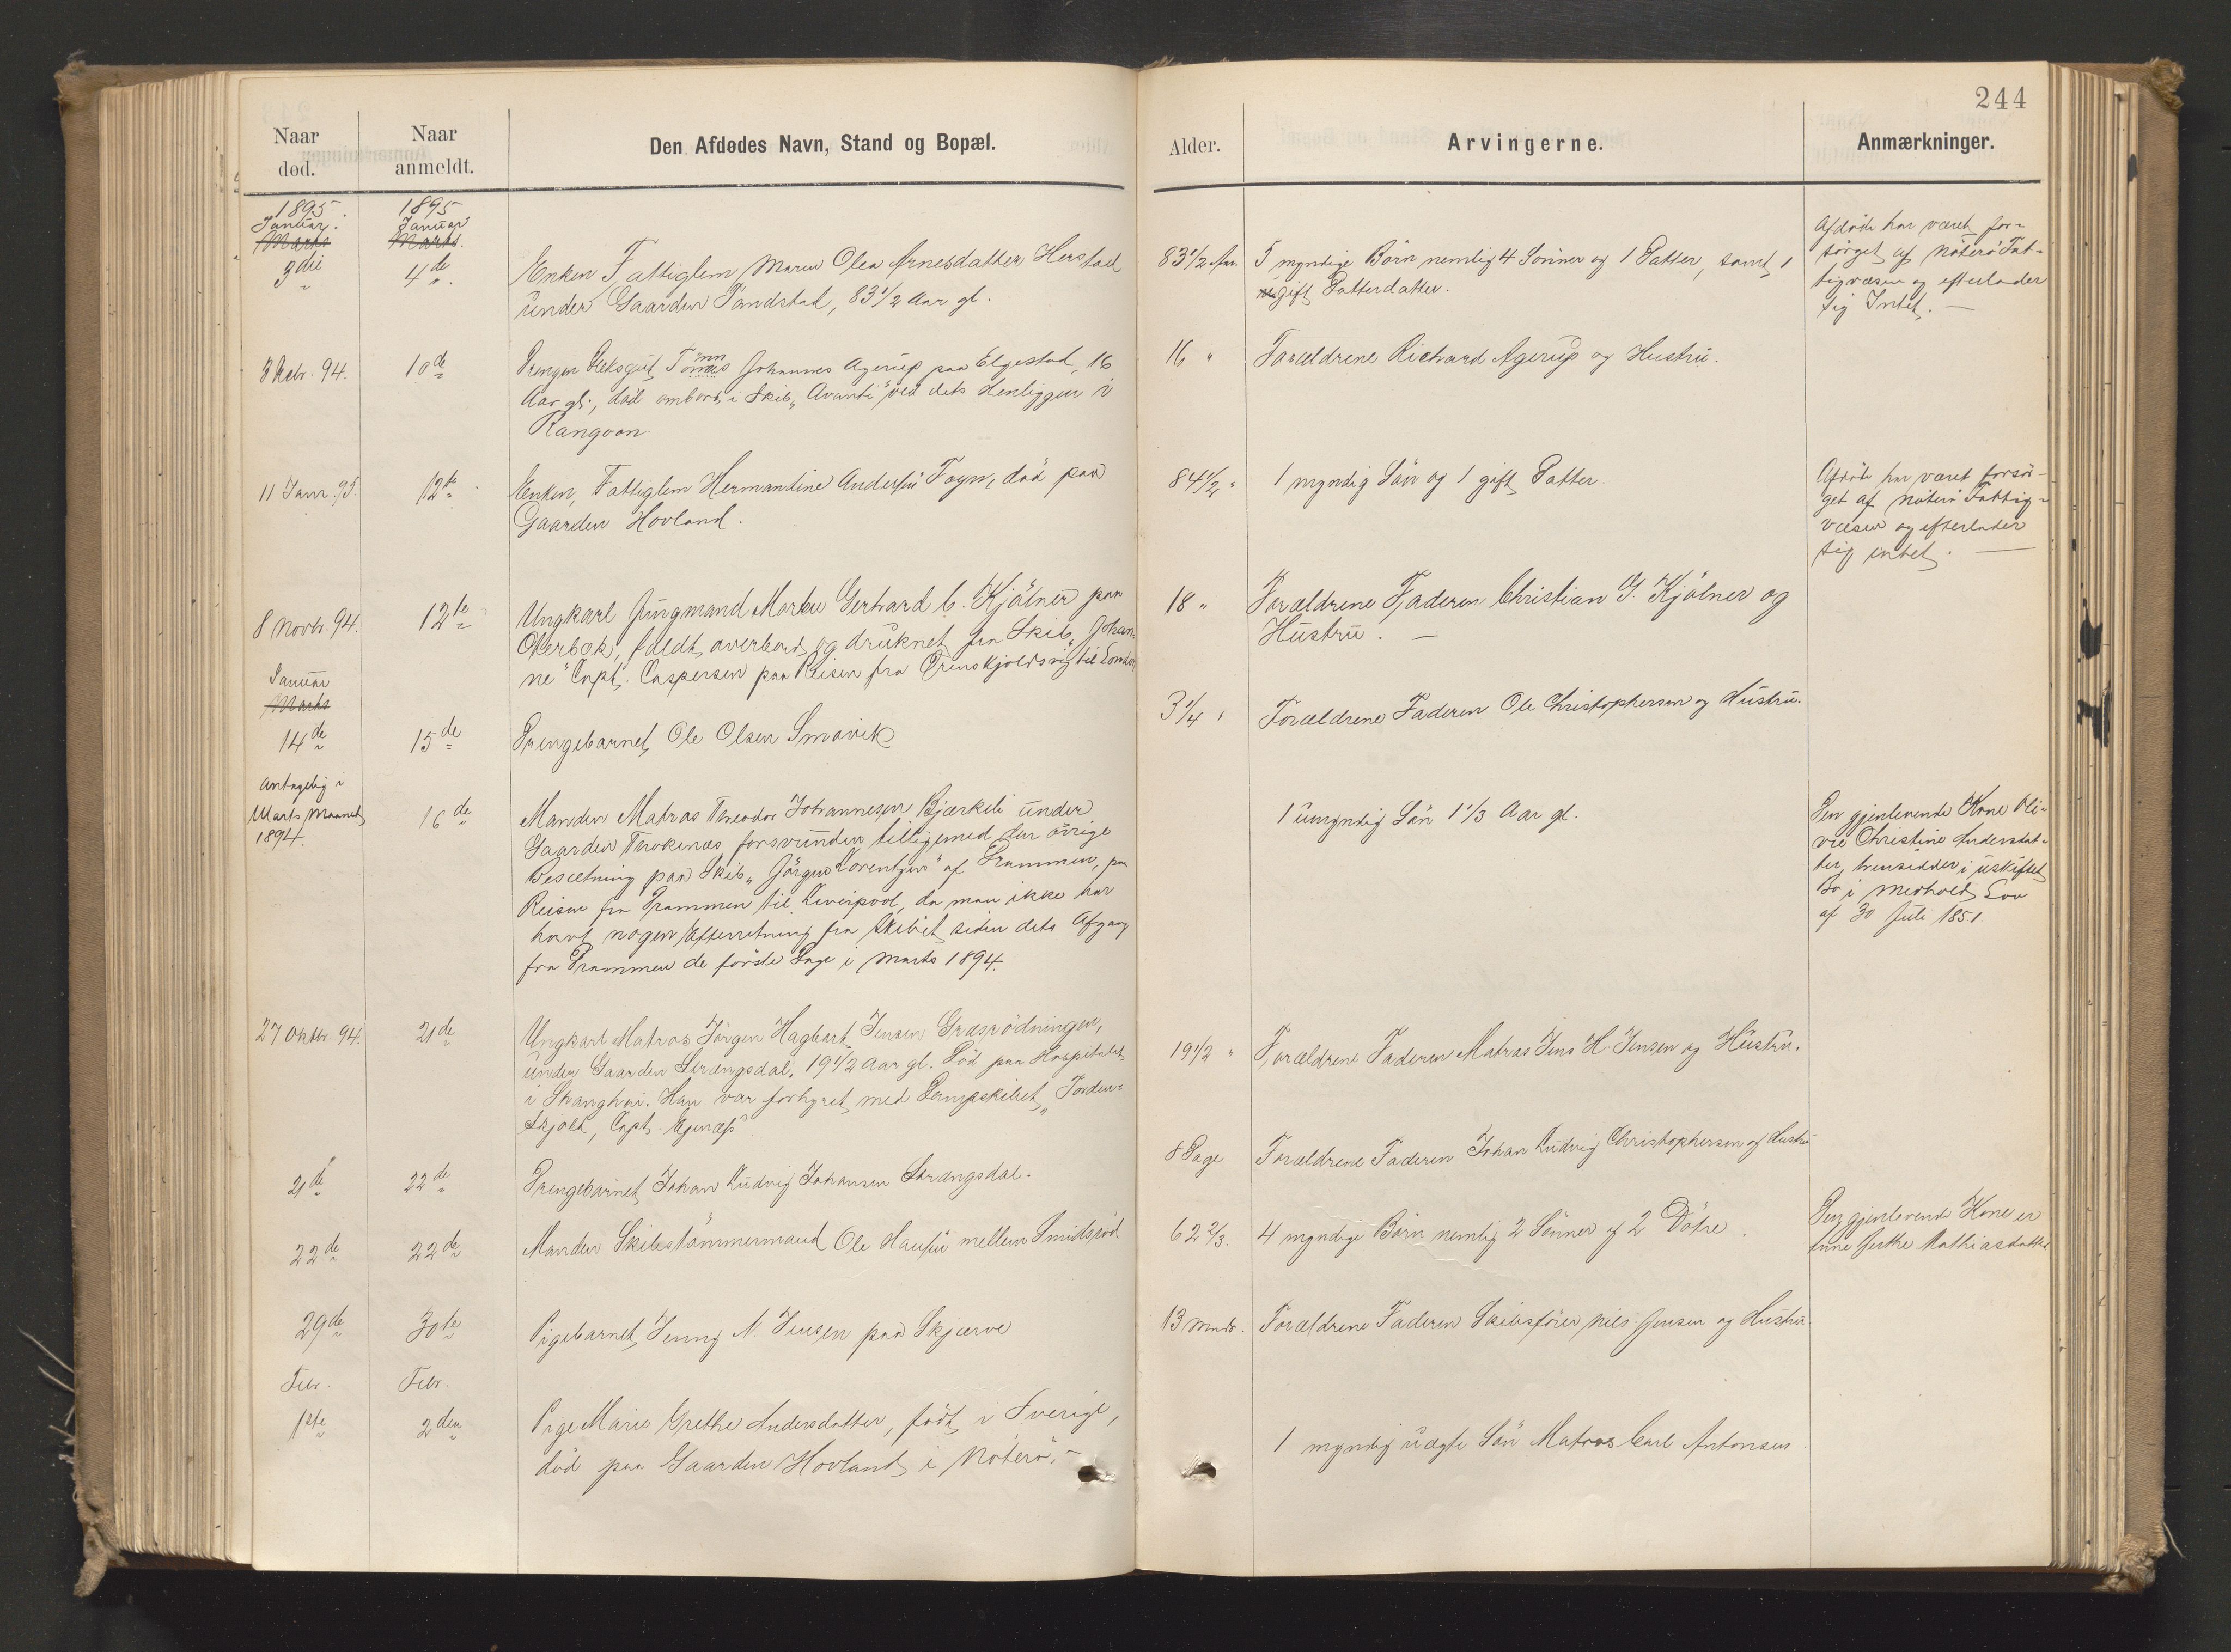 244
Naar død.
Naar anmeldt.
Den Afdødes Navn, Stand og Bopæl.
Alder.
Arvingerne.
Anmærkninger.
1895
Januar.
Marts
3die
1895
Januar
Marts.
4de
Enken Fattiglem Maren Olea Arnesdatter Herstad
under Gaarden Tandstad, 83 1/2 Aar gl.
83 1/2 Aar.
5 myndige Börn nemlig 4 Sönner og 1 Datter, samt 1
gift Datterdatter.
Afdöde har været for-
sörget af Nöterö Fat-
tigvæsen og efterlader
sig Intet. —
3 Febr. 94.
10de
Drengen Dæksgut Johannes Agerup paa Elgestad, 16
Aar gl., död ombord i Skib „Avanti" ved dets Henliggen i
Rangoon.
16 "
Forældrene Richard Agerup og Hustru.
11 Janr. 95.
12te
Enken, Fattiglem Hermandine Andersen Foyn, död paa
Gaarden Hovland.
84 1/2 "
1 myndig Sön og 1 gift Datter.
Afdöde har været forsör-
get af Nöterö Fattig-
væsen og efterlader
sig intet. —
8 Novbr. 94.
12te
Ungkarl Jungmand Gerhard C. Kjölner paa
Oterbæk, faldt overbord og druknet fra Skib „Johan-
ne" Capt. Caspersen paa Reisen fra Örenskjoldsvig til London
18 "
Forældrene Faderen Christian G. Kjölner og
Hustru. —
Januar
Marts
14de
15de
Drengebarnet Ole Olsen Smavik
3 1/4 "
Forældrene Faderen Ole Christophersen og Hustru.
Antagelig i
Marts Maaned
1894.
16de
Manden Matros Theodor Johannesen Bjærkeli under
Gaarden forsvunden tilligemed den övrige
Besætning paa Skib „Jörgen Lorentzen" af Drammen, paa
Reisen fra Drammen til Liverpool, da man ikke har
havt nogen Efterretning fra Skibet siden dets Afgang
fra Drammen de förste Dage i Marts 1894.
1 umyndig Sön 1 1/3 Aar gl.
Den gjenlevende Kone Oli-
via Christine Andersdat-
ter, hensidder i uskiftet
Bo i Medhold Lov
af 30 Juli 1851.
27 Oktbr. 94.
21de
Ungkarl Matros Jörgen Hagbart Jensen Græsrödningen,
under Gaarden Strængsdal, 19 1/2 Aar gl. Död paa Hospitalet
i Shanghai. Han var forhyret med Dampskibet „Torden-
skjold, Capt.
19 1/2 "
Forældrene Faderen Matros Jens H. Jensen og Hustru.
21de
22de
Drengebarnet Johan Ludvig Johansen Strængsdal.
8 Dage
Forældrene Faderen Johan Ludvig Christophersen og Hustru
22de
22de
Manden Skibstömmermand Ole Hansen mellem Smidsröd
62 2/3.
4 myndige Börn nemlig 2 Sönner og 2 Dötre.
Den gjenlevende Kone er
Anne Mathiasdatter
29de
30te
Pigebarnet Jenny N. Jensen paa Skjærve
13 Mndr.
Forældrene Faderen Skibsförer Nils Jensen og Hustru.
Febr.
1ste
Febr.
2den
Pige Marie Grethe Andersdatter, födt i Sverige,
död paa Gaarden Hovland i Nöterö. —
1 myndig uægte Sön Matros Carl Antonsen